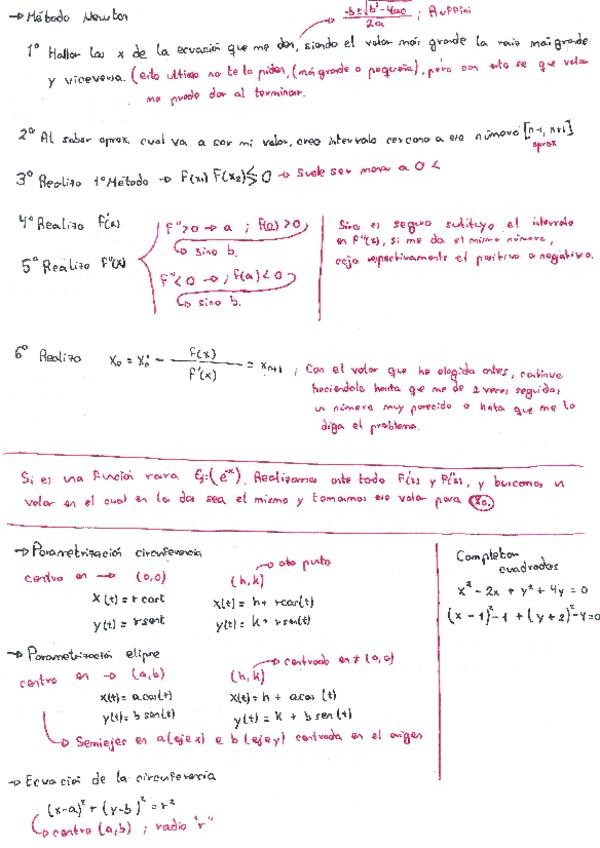 → Método Newton
-b±√b²-4ac / 2a ; Ruffini
1º Hallar las x de la ecuación que me dan, siendo el valor más grande la raiz más grande
y viceversa. (esto ultimo no te lo piden, (más grande o pequeña), pero con esto se que valor
me puede dar al terminar.
2º Al saber aprox. cual va a ser mi valor, creo intervalo cercano a ese número [n-1, n+1]
aprox
3º Realizo 1º Método → F(x₁) F(x₂) ≤ 0 → Suele ser menor a 0 <
4º Realizo F'(x)
5º Realizo F''(x)
F''>0 → a ; F(a)>0,
sino b.
F''<0 → ; F(a)<0
sino b.
Sino es seguro sustituyo el intervalo
en F''(x), si me da el mismo número,
cojo respectivamente el positivo o negativo.
6º Realizo x₀ = x₀' - F(x) / F'(x) = xₙ₊₁ ; Con el valor que he elegido antes, continue
haciendolo hasta que me de 2 veces seguidas
un número muy parecido o hata que me lo
diga el problema.
Si es una función rara Ej: (e⁻ˣ). Realizamos ante todo F'(x) y F''(x), y buscamos un
valor en el cual en las dos sea el mismo y tomamos ese valor para x₀.
→ Parametrización circunferencia
centro en → (0,0) (h,k) → oto punto
x(t) = r cost x(t) = h + rcos(t)
y(t) = r sent y(t) = k + rsen(t)
→ Parametrización elipse
centro en → (a,b) (h,k) → centrado en ≠ (0,0)
x(t) = a cos(t) x(t) = h + a cos (t)
y(t) = b sen(t) y(t) = k + b sen (t)
→ Semiejes en a (eje x) e b (eje y) centrada en el origen
→ Ecuación de la circunferencia
(x-a)² + (y-b)² = r²
→ centro (a,b) ; radio "r"
Completar
cuadrados
x² - 2x + y² + 4y = 0
(x - 1)² - 1 + (y + 2)² - 4 = 0